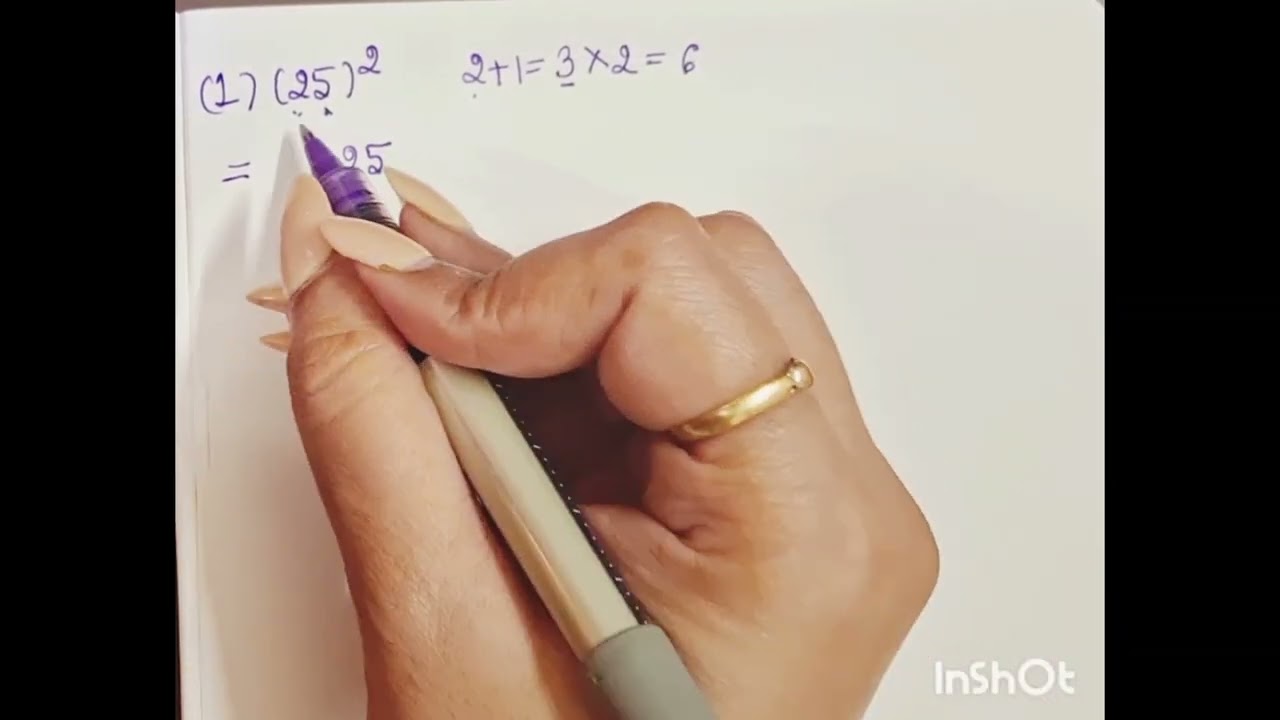 (1) (25)² 2+1=3×2=6
= 25
InShOt